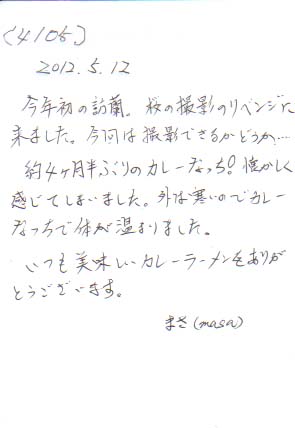 (4105)
2012.5.12
今年初の訪蘭。桜の撮影のリベンジに
来ました。今回は撮影できるかどうか…
約4ヶ月半ぶりのカレーなっち!懐かしく
感じてしまいました。外は寒いのでカレー
なっちで体が温まりました。
いつも美味しいカレーラーメンをありが
とうございます。
まさ(masa)